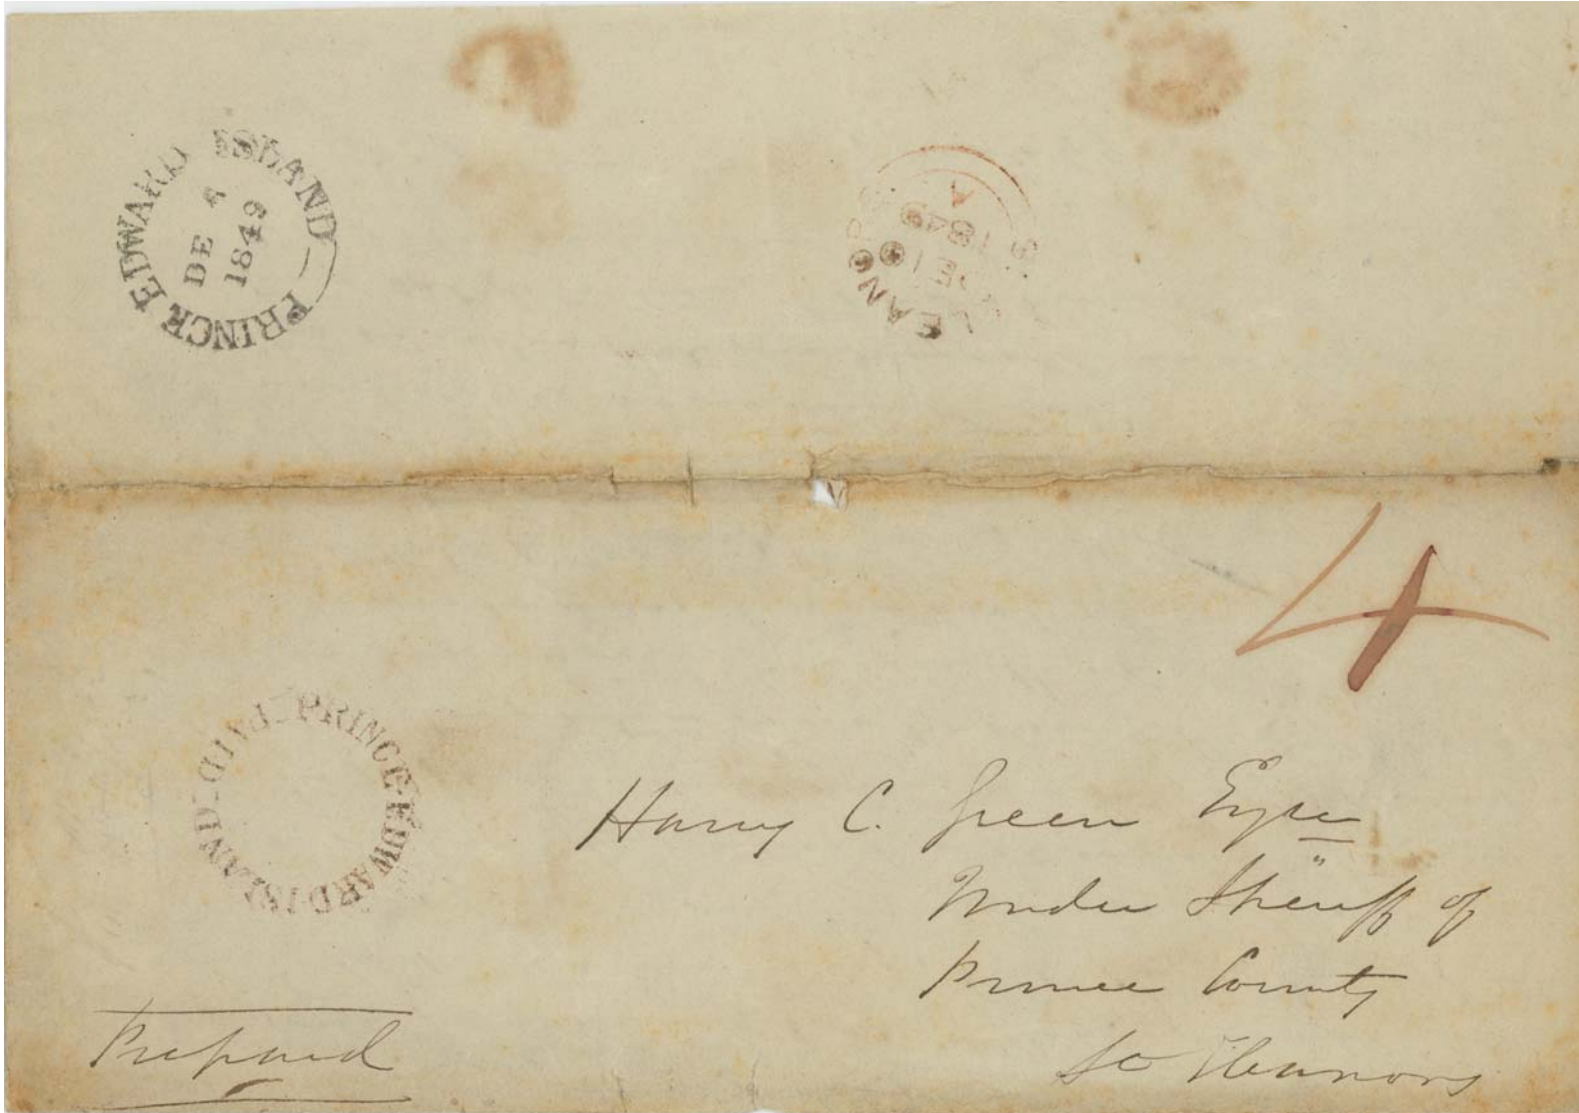 PRINCE EDWARD ISLAND
DE
1849
ST ELEANORS
A
1849
DE 10
4
PAID PRINCE EDWARD ISLAND
Harry C. Green Esqre
Under Sheriff of
Prince County
St Eleanors
Prepaid